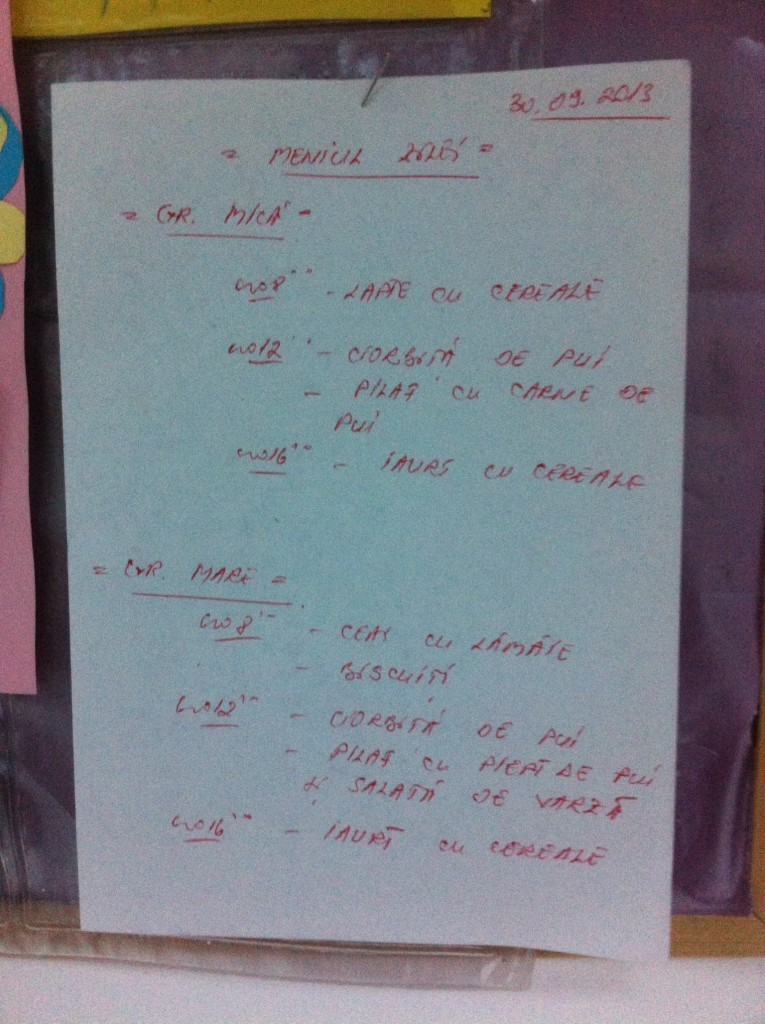 30.09.2013
= MENIUL ZILEI =
= GR. MICĂ =
ORO 8°° - LAPTE CU CEREALE
ORO 12°° - CIORBITĂ DE PUI
- PILAF CU CARNE DE
PUI
ORO 16°° - IAURT CU CEREALE
= GR. MARE =
ORO 8°° - CEAI CU LĂMÂIE
- BISCUITI
ORO 12°° - CIORBITĂ DE PUI
- PILAF CU PIEPT DE PUI
SALATĂ DE VARZĂ
ORO 16°° - IAURT CU CEREALE